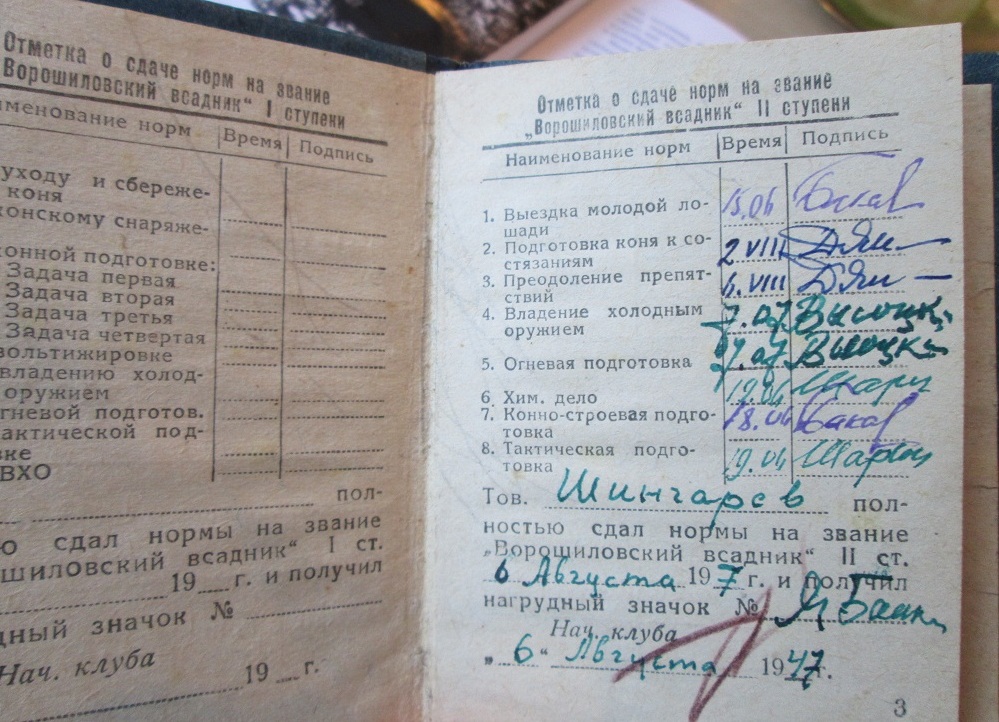 Отметка о сдаче норм на звание
Ворошиловский всадник“ I ступени
именование норм Время Подпись
уходу и сбереже-
коня
конскому снаряже-
конной подготовке:
Задача первая
Задача вторая
Задача третья
Задача четвертая
вольтижировке
владению холод-
оружием
гневой подготов.
актической под-
вке
ВХО
пол-
ю сдал нормы на звание
шиловский всадник“ I ст.
19 г. и получил
дный значок №
Нач. клуба
19 г.
Отметка о сдаче норм на звание
„Ворошиловский всадник“ II ступени
Наименование норм Время Подпись
1. Выездка молодой ло- 15.06
шади
2. Подготовка коня к со- 2 VIII
стязаниям
3. Преодоление препят- 6. VIII
ствий
4. Владение холодным 7.07
оружием
5. Огневая подготовка 07
6. Хим. дело 19.06
7. Конно-строевая подго- 18.06
товка
8. Тактическая подго- 19.06
товка
Тов. Шингарев пол-
ностью сдал нормы на звание
„Ворошиловский всадник“ II ст.
6 Августа 197 г. и получил
нагрудный значок №
Нач. клуба
„ 6 “ Августа 1947 г.
3